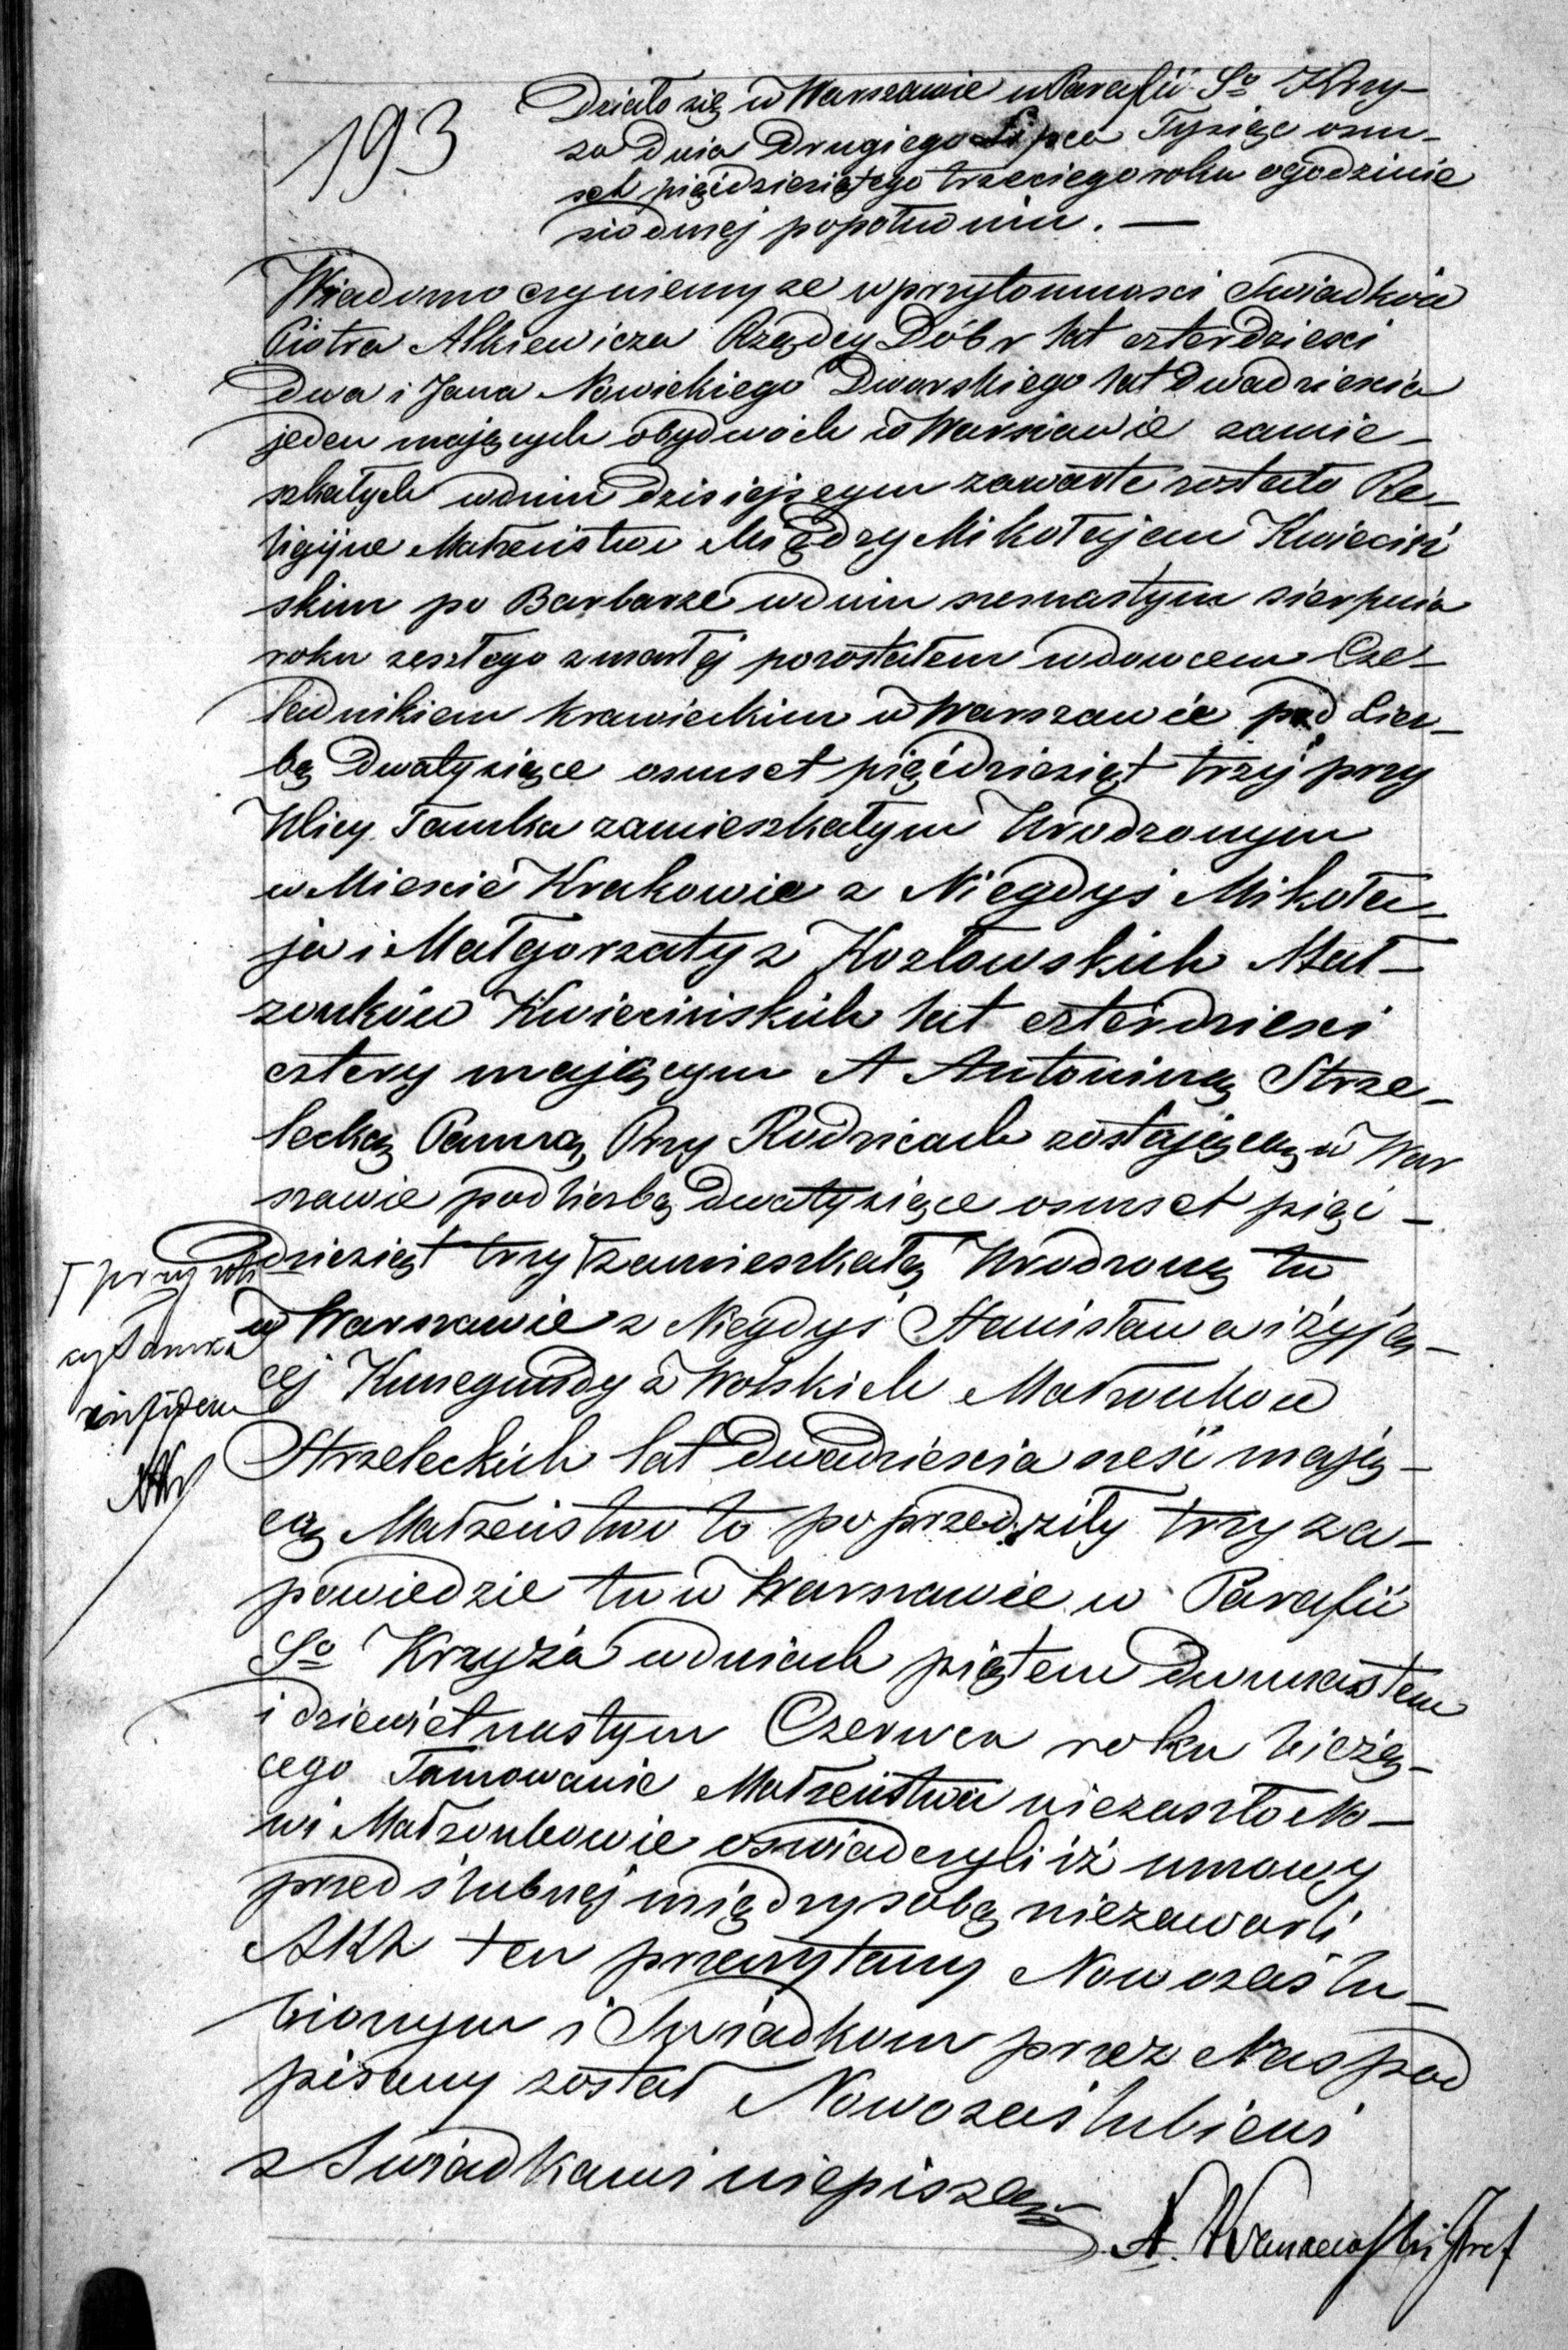 193
Działo się w Warszawie w Parafii Sgo Krzy-
ża dnia Drugiego Lipca Tysiąc osm-
set pięćdziesiątego trzeciego roku o godzinie
siódmej popołudniu. —
Wiadomo czyniemy że w przytomności Świadków
Piotra Alkiewicza Rządcy Dóbr lat czterdzieści
dwa i Jana Nowickiego Dworskiego lat dwadzieścia
jeden mających obydwóch w Warszawie zamie-
szkałych w dniu dzisiejszym zawarte zostało Re-
ligijne Małżeństwo Między Mikołajem Kwieciń
skim po Barbarze w dniu szesnastym sierpnia
roku zeszłego zmarłej pozostałem wdowcem Cze-
ladnikiem krawieckim w Warszawie pod Licz-
bą Dwatysiące osmset pięćdziesiąt trzy przy
Ulicy Tamka zamieszkałym Urodzonym
w Mieście Krakowie z Niegdyś Mikoła-
ja i Małgorzaty z Kozłowskich Mał-
żonków Kwiecińskich lat czterdzieści
cztery mającym A Antoniną Strze-
lecką Panną Przy Rodzicach zostającą w War
szawie pod liczbą Dwatysiące osmset pięć-
dziesiąt trzy zamieszkałą Urodzoną tu
w Warszawie z Niegdyś Stanisława i żyją-
cej Kunegundy z Wolskich Małżonków
Strzeleckich lat dwadzieścia sześć mają-
cą Małżeństwo to poprzedziły trzy za-
powiedzie tu w Warszawie w Parafii
Sgo Krzyża w dniach piątem dwunastem
i dziewiętnastym Czerwca roku bieżą-
cego Tamowanie Małżeństwa niezaszło No-
wi Małżonkowie oświadczyli iż umowy
przedślubnej między sobą niezawarli
Akt ten przeczytany Nowozaślu-
bionym i Świadkom przez Nas pod
pisany został Nowozaślubieni
z Świadkami niepiszą
przy uli
cy Tamka